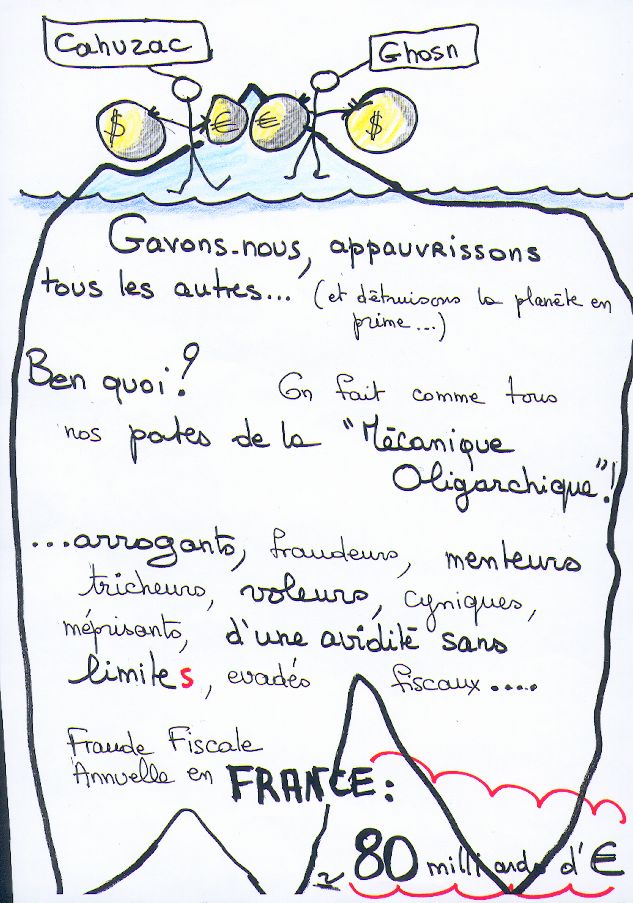 Cahuzac
Ghosn
$ € € $
Gavons-nous, appauvrissons
tous les autres... (et détruisons la planète en
prime...)
Ben quoi?
On fait comme tous
nos potes de la "Mécanique
Oligarchique"!
...arrogants, fraudeurs, menteurs
tricheurs, voleurs, cyniques,
méprisants, d'une avidité sans
limites, evadés fiscaux.....
Fraude Fiscale
Annuelle en FRANCE:
~ 80 milliards d'€